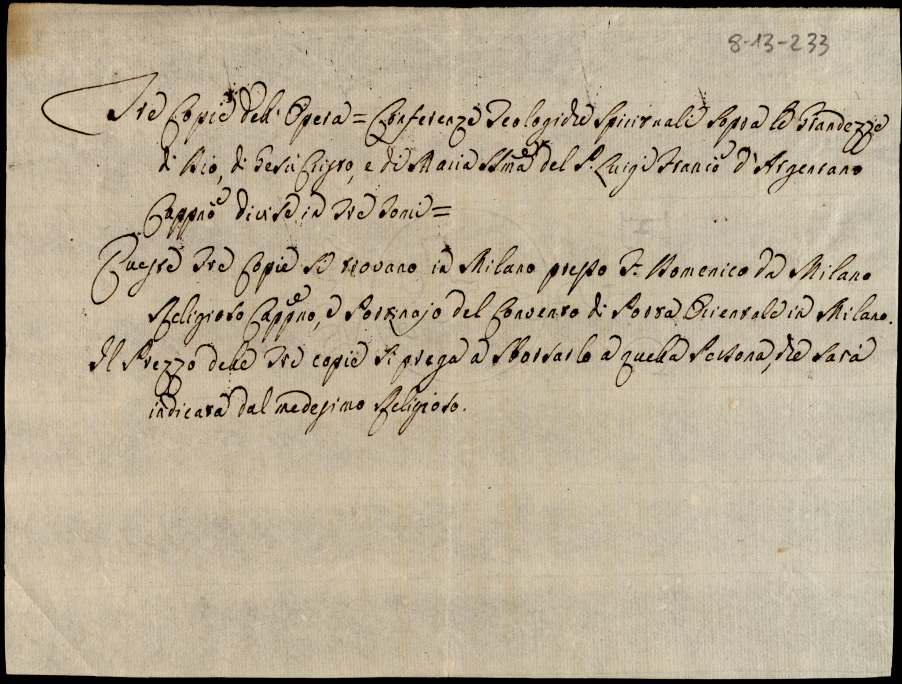 8-13-233
Tre Copie dell' Opera = Conferenze Teologiche Spirituali sopra le Grandezze
di Dio, di Gesù Cristo, e di Maria SSma del P. Luigi Franco d'Argentano
Cappno divise in Tre Tomi =
Queste Tre Copie si trovano in Milano presso Fr. Domenico da Milano
Religioso Cappno, e Portinajo del Convento di Porta Orientale in Milano.
Il Prezzo delle Tre copie si prega a Sborsarlo a quella Persona, che sarà
indicata dal medesimo Religioso.